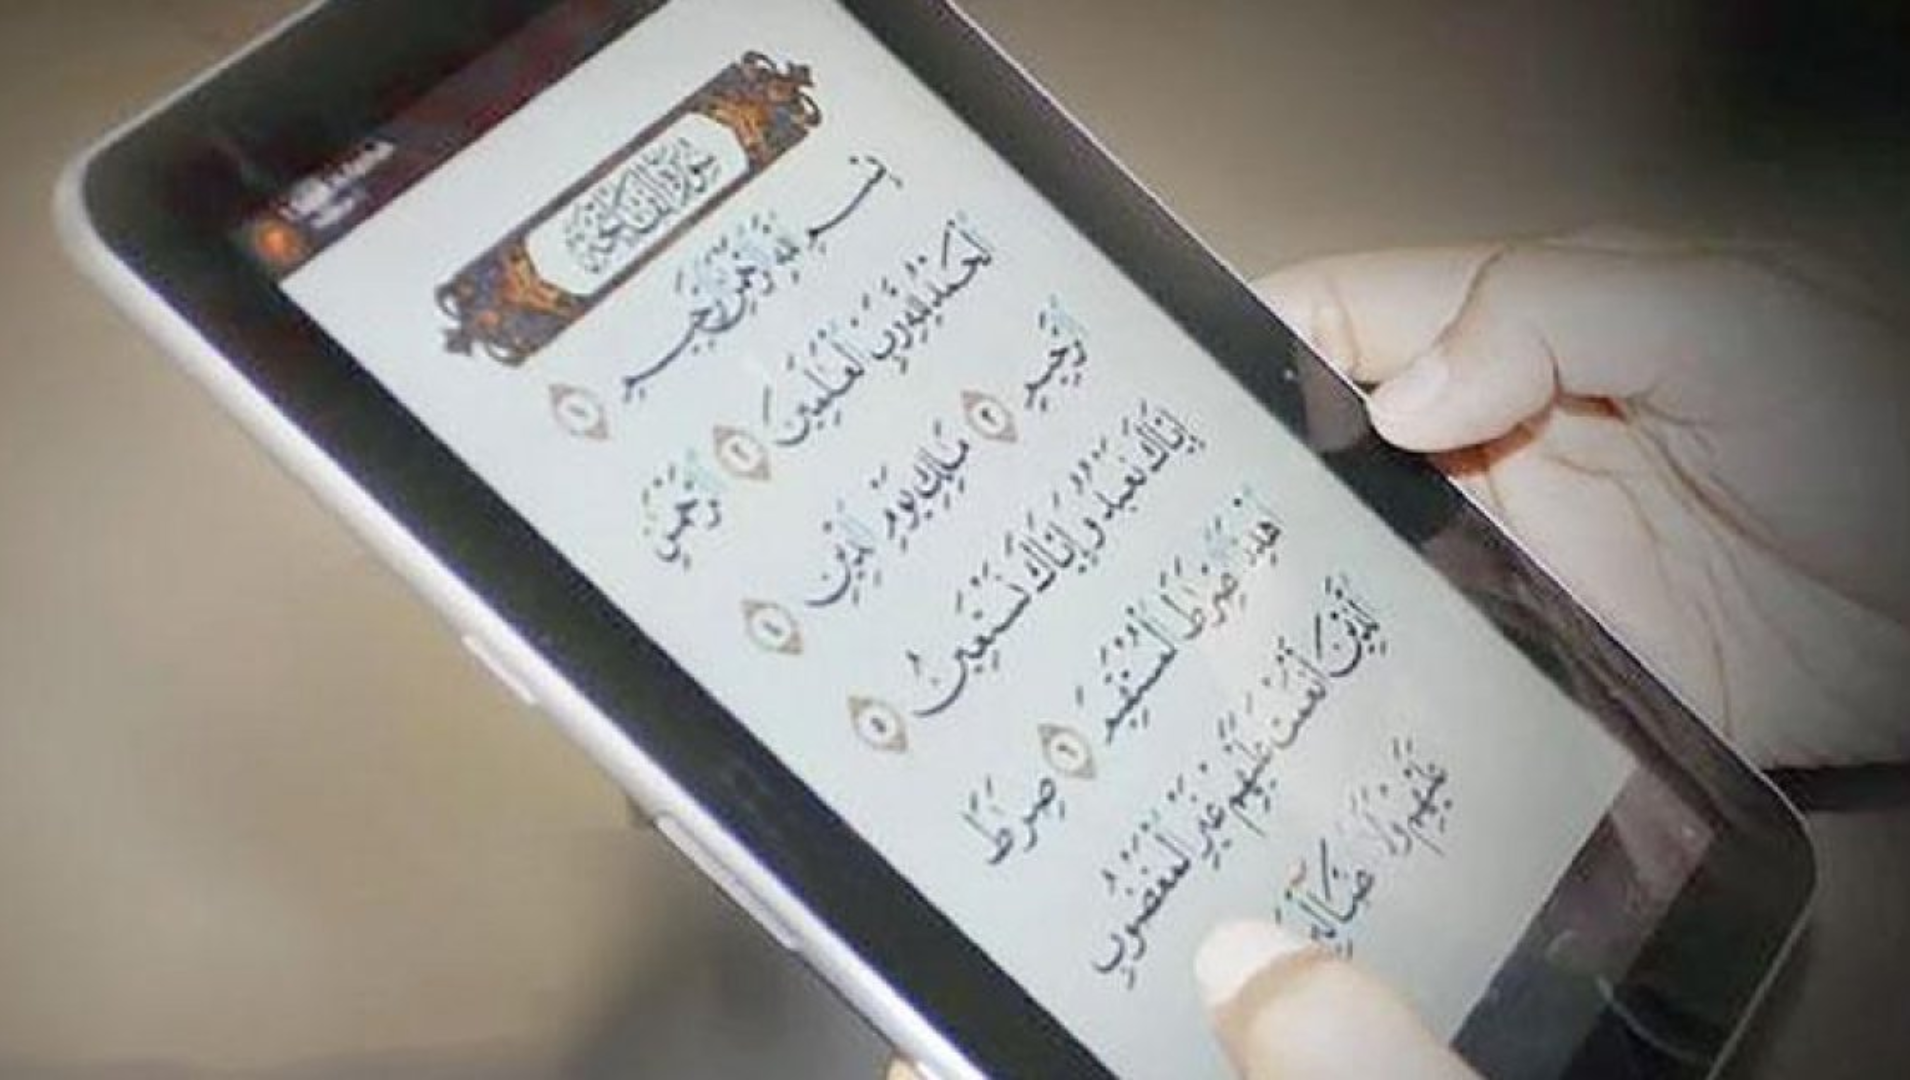 سُورَةُ الفَاتِحَةِ
بِسْمِ ٱللَّهِ ٱلرَّحْمَٰنِ ٱلرَّحِيمِ ١
ٱلْحَمْدُ لِلَّهِ رَبِّ ٱلْعَٰلَمِينَ ٢ ٱلرَّحْمَٰنِ
ٱلرَّحِيمِ ٣ مَٰلِكِ يَوْمِ ٱلدِّينِ ٤
إِيَّاكَ نَعْبُدُ وَإِيَّاكَ نَسْتَعِينُ ٥
ٱهْدِنَا ٱلصِّرَٰطَ ٱلْمُسْتَقِيمَ ٦ صِرَٰطَ
ٱلَّذِينَ أَنْعَمْتَ عَلَيْهِمْ غَيْرِ ٱلْمَغْضُوبِ
عَلَيْهِمْ وَلَا ٱلضَّآلِّينَ